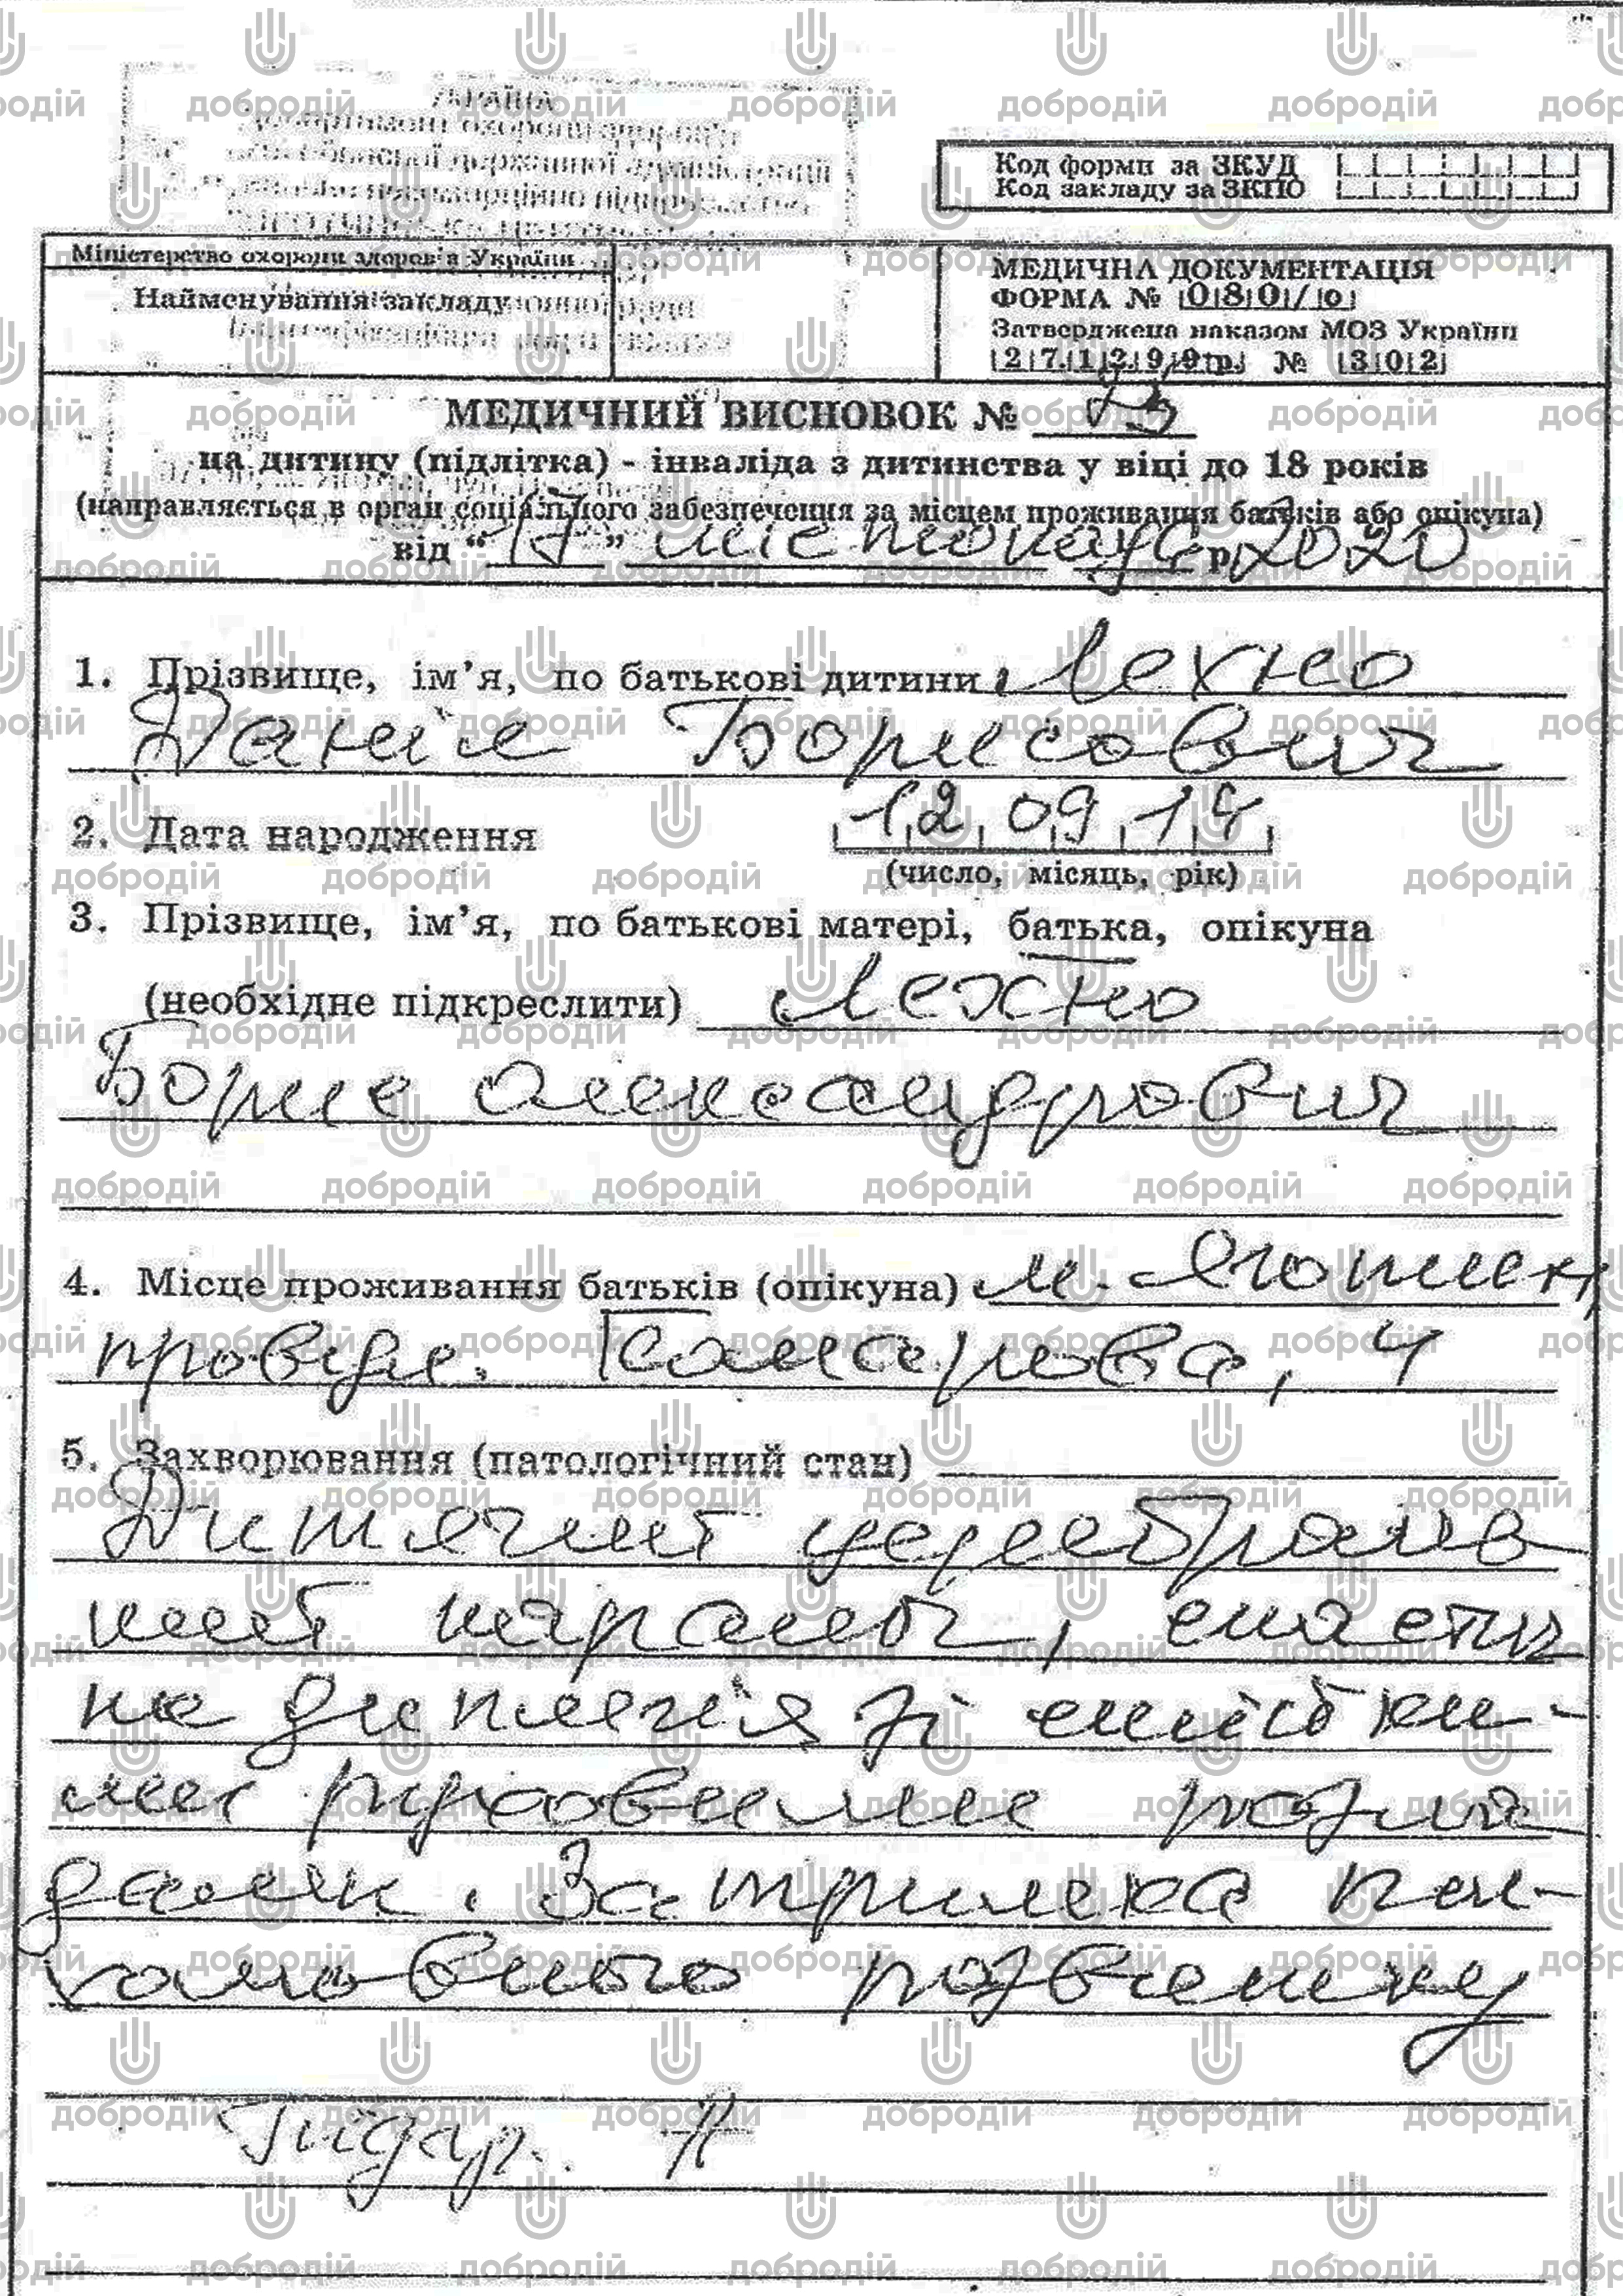 УКРАЇНА
Код форми за ЗКУД
Код закладу за ЗКПО
Міністерство охорони здоров'я України
Найменування закладу
МЕДИЧНА ДОКУМЕНТАЦІЯ
ФОРМА № 080/о
Затверджена наказом МОЗ України
27.12.99р. № 302
МЕДИЧНИЙ ВИСНОВОК №
на дитину (підлітка) - інваліда з дитинства у віці до 18 років
(направляється в орган соціального забезпечення за місцем проживання батьків або опікуна)
від "17" листопада р. 2020
1. Прізвище, ім'я, по батькові дитини Лехно
Даніїл Борисович
2. Дата народження 12 09 14
(число, місяць, рік)
3. Прізвище, ім'я, по батькові матері, батька, опікуна
(необхідне підкреслити) Лехно
Борис Олександрович
4. Місце проживання батьків (опікуна) м. Яготин,
4
5. Захворювання (патологічний стан)
Дитячий церебраль
ний параліч, спастич
на диплегія зі
руховими розла
дами. Затримка пси-
хомовного розвитку
Підгр. А
добродій